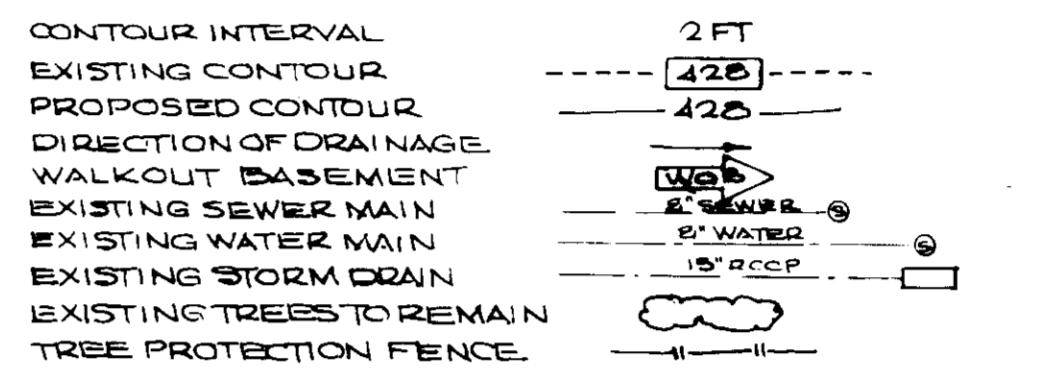 CONTOUR INTERVAL 2 FT
EXISTING CONTOUR 428
PROPOSED CONTOUR 428
DIRECTION OF DRAINAGE
WALKOUT BASEMENT WOB
EXISTING SEWER MAIN 8" SEWER S
EXISTING WATER MAIN 8" WATER S
EXISTING STORM DRAIN 15" RCCP
EXISTING TREES TO REMAIN
TREE PROTECTION FENCE